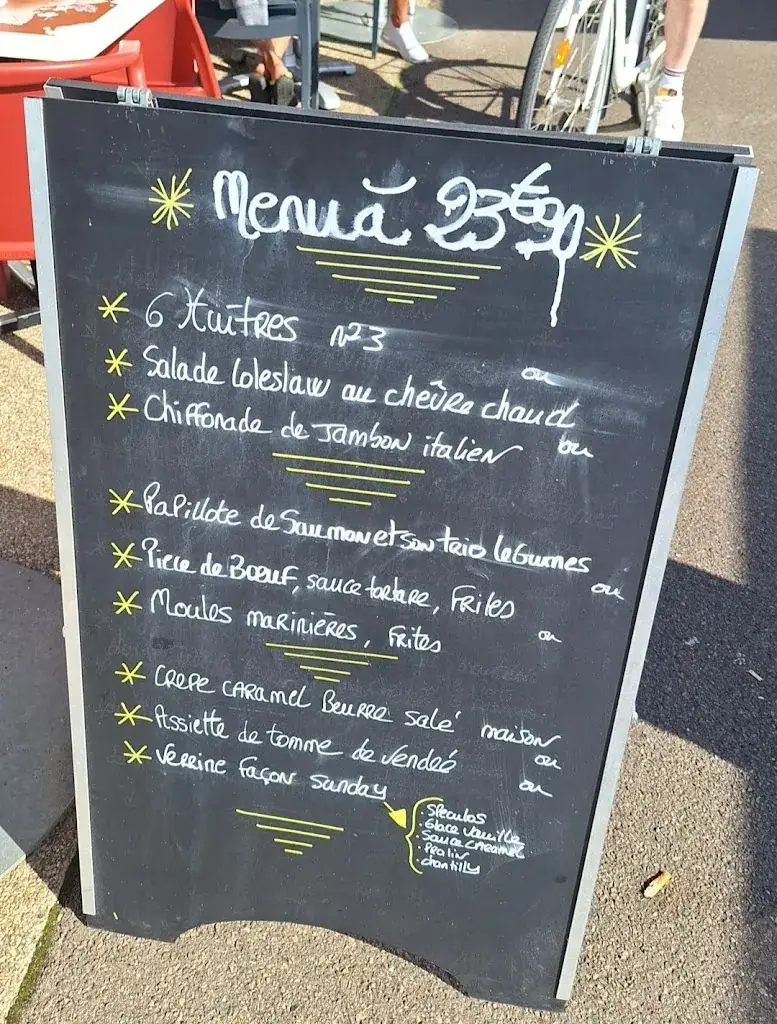 Menu à 23€90
6 Huîtres n°3
ou
Salade Coleslaw au chèvre chaud
ou
Chiffonade de Jambon italien
Papillote de Saumon et son trio legumes
ou
Pièce de Boeuf, sauce tartare, Frites
ou
Moules marinières, Frites
Crepe caramel Beurre salé maison
ou
Assiette de tomme de Vendée
ou
Verrine façon Sunday
. Speculos
. Glace vanille
. Sauce caramel
. Pralin
. chantilly